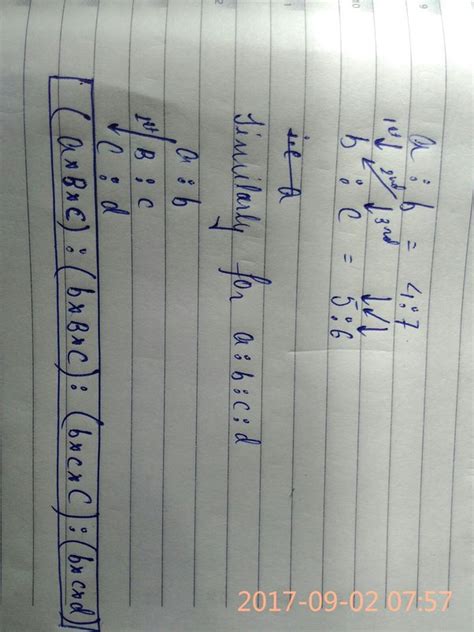 9
a : b = 4:7
1st 2nd 3rd
10
b : c = 5:6
Similarly for a:b:c:d
a : b
1st B : c
C : d
(a×B×C) : (b×B×C) : (b×c×C) : (b×c×d)
2017-09-02 07:57